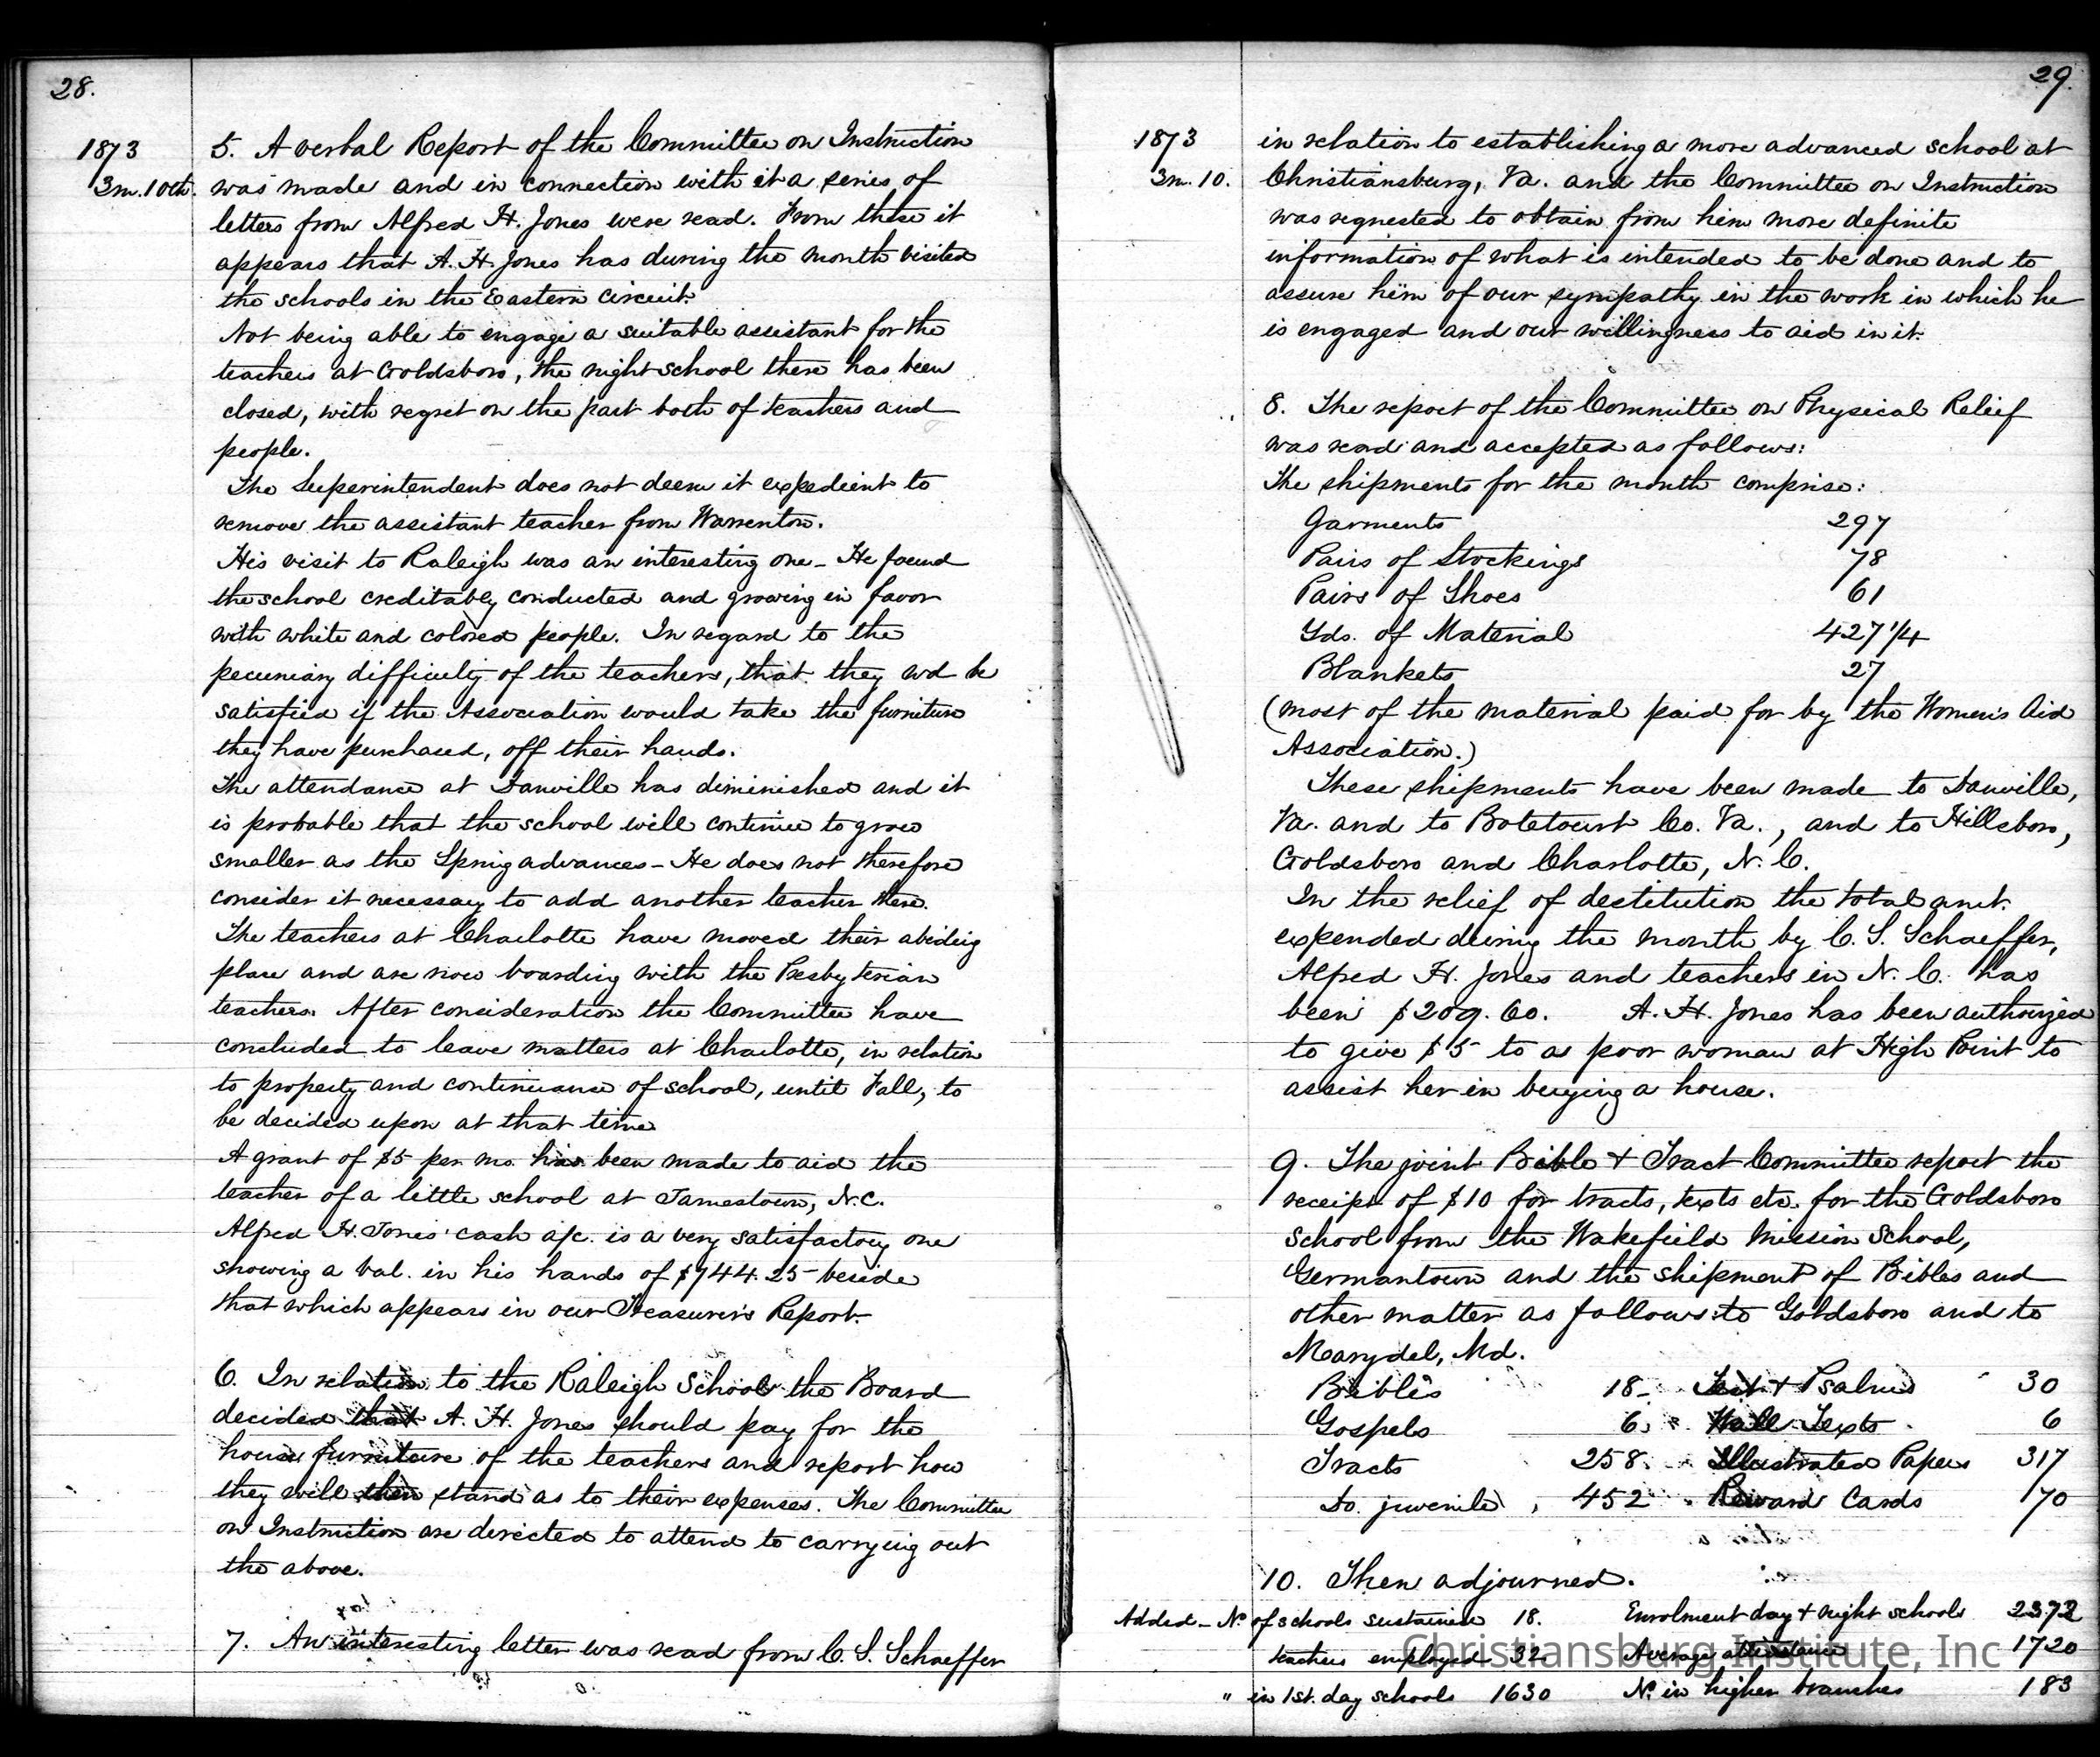 28.
1873
3m. 10th.
5. A verbal Report of the Committee on Instruction
was made and in connection with it a series of
letters from Alfred H. Jones were read. From these it
appears that A. H. Jones has during the month visited
the schools in the Eastern Circuit.
Not being able to engage a suitable assistant for the
teachers at Goldsboro, the night school there has been
closed, with regret on the part both of teachers and
people.
The Superintendent does not deem it expedient to
remove the assistant teacher from Warrenton.
His visit to Raleigh was an interesting one - He found
the school creditably conducted and growing in favor
with white and colored people. In regard to the
pecuniary difficulty of the teachers, that they wd be
satisfied if the Association would take the furniture
they have purchased, off their hands.
The attendance at Danville has diminished and it
is probable that the school will continue to grow
smaller as the Spring advances - He does not therefore
consider it necessary to add another teacher there.
The teachers at Charlotte have moved their abiding
place and are now boarding with the Presbyterian
teachers. After consideration the Committee have
concluded to leave matters at Charlotte, in relation
to property and continuance of school, until Fall, to
be decided upon at that time.
A grant of $5 per mo. has been made to aid the
teacher of a little school at Jamestown, N.C.
Alfred H. Jones' cash a/c. is a very satisfactory one
showing a bal. in his hands of $744.25 beside
that which appears in our Treasurer's Report.
6. In relation to the Raleigh School the Board
decided that A. H. Jones should pay for the
house furniture of the teachers and report how
they will then stand as to their expenses. The Committee
on Instruction are directed to attend to carrying out
the above.
7. An interesting letter was read from C. S. Schaeffer
29.
1873
3m. 10.
in relation to establishing a more advanced school at
Christiansburg, Va. and the Committee on Instruction
was requested to obtain from him more definite
information of what is intended to be done and to
assure him of our sympathy in the work in which he
is engaged and our willingness to aid in it.
8. The report of the Committee on Physical Relief
was read and accepted as follows:
The shipments for the month comprise:
Garments 297
Pairs of Stockings 78
Pairs of Shoes 61
Yds. of Material 427 1/4
Blankets 27
(most of the material paid for by the Women's Aid
Association.)
These shipments have been made to Danville,
Va. and to Botetourt Co. Va., and to Hillsboro,
Goldsboro and Charlotte, N. C.
In the relief of destitution the total amt.
expended during the month by C. S. Schaeffer,
Alfred H. Jones and teachers in N. C. has
been $209.60. A. H. Jones has been authorized
to give $5 to a poor woman at High Point to
assist her in buying a house.
9. The joint Bible & Tract Committee report the
receipt of $10 for tracts, texts etc. for the Goldsboro
School from the Wakefield Mission School,
Germantown and the shipment of Bibles and
other matter as follows: to Goldsboro and to
Marydel, Md.
Bibles 18 Test. & Psalms 30
Gospels 6 Wall Texts 6
Tracts 258 Illustrated Papers 317
Do. juvenile 452 Reward Cards 70
10. Then adjourned.
Added - No. of schools sustained 18. Enrolment day & night schools 2372
teachers employed 32 Average attendance 1720
" in 1st. day schools 1630 No. in higher branches 183
Christiansburg Institute, Inc